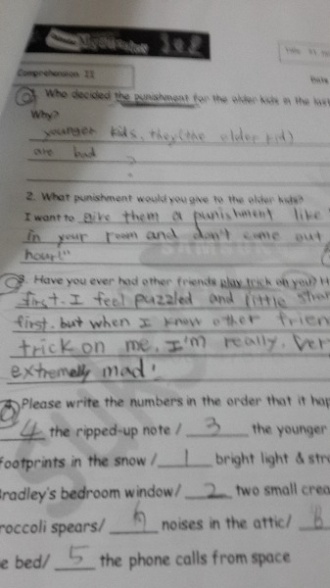 Comprehension II
Who decided the punishment for the older kids in the last
Why?
younger kids, they(the older kid)
are bad
2. What punishment would you give to the older kids?
I want to give them a punishment like
in your room and don't come out
hour!"
3. Have you ever had other friends play trick on you? H
first. I feel puzzled and little
first. but when I know other frien
trick on me, I'm really, ver
extremely mad!
4 Please write the numbers in the order that it hap
4 the ripped-up note / 3 the younger
footprints in the snow / 1 bright light & str
Bradley's bedroom window/ 2 two small crea
roccoli spears/ 6 noises in the attic/ 8
e bed/ 5 the phone calls from space